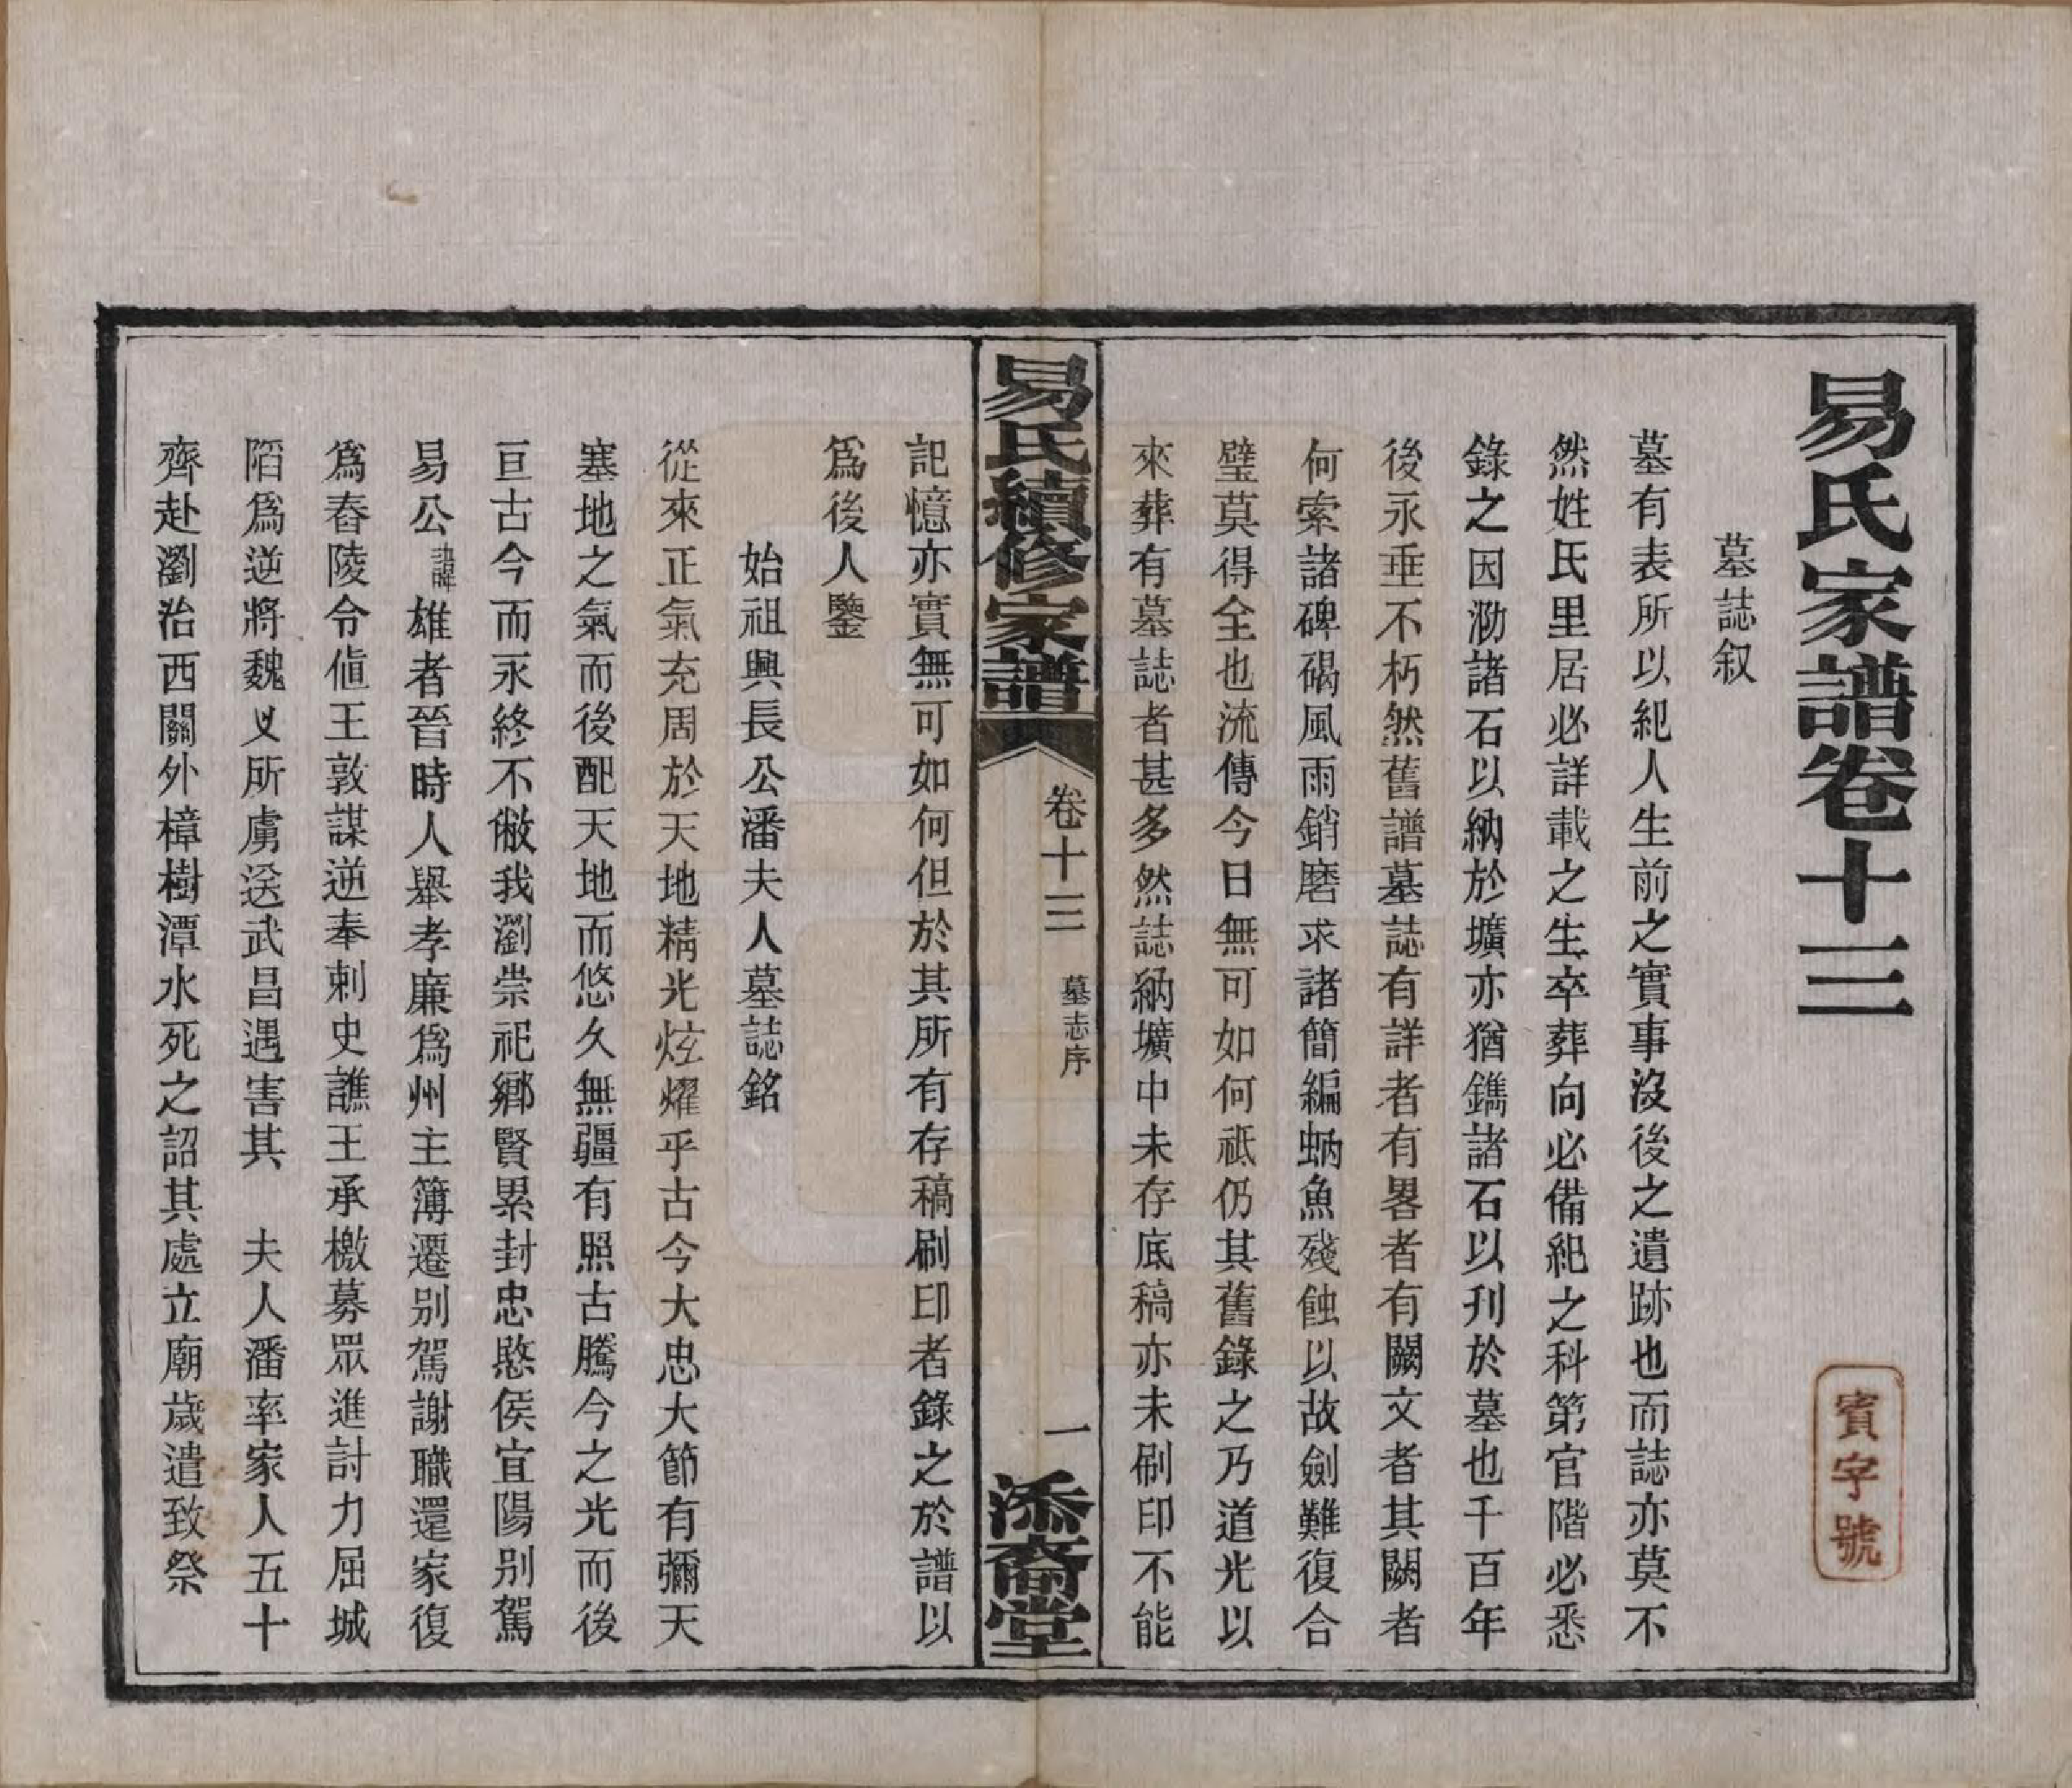 易氏家譜卷十三
賓字號
墓誌叙
墓有表所以紀人生前之實事沒後之遺跡也而誌亦莫不
然姓氏里居必詳載之生卒葬向必備紀之科第官階必悉
錄之因泐諸石以納於壙亦猶鐫諸石以刋於墓也千百年
後永垂不朽然舊譜墓誌有詳者有畧者有闕文者其闕者
何索諸碑碣風雨銷磨求諸簡編蚋魚殘蝕以故劍難復合
璧莫得全也流傳今日無可如何祇仍其舊錄之乃道光以
來葬有墓誌者甚多然誌納壙中未存底稿亦未刷印不能
易氏續修家譜
卷十三
墓志序
一
添裔堂
記憶亦實無可如何但於其所有存稿刷印者錄之於譜以
爲後人鑒
始祖興長公潘夫人墓誌銘
從來正氣充周於天地精光炫燿乎古今大忠大節有彌天
塞地之氣而後配天地而悠久無疆有照古騰今之光而後
亘古今而永終不敝我瀏崇祀鄉賢累封忠愍侯宜陽別駕
易公諱雄者晉時人舉孝廉爲州主簿遷別駕謝職還家復
爲舂陵令值王敦謀逆奉刺史譙王承檄募眾進討力屈城
陷爲逆將魏乂所虜送武昌遇害其 夫人潘率家人五十
齊赴瀏治西關外樟樹潭水死之詔其處立廟歲遣致祭